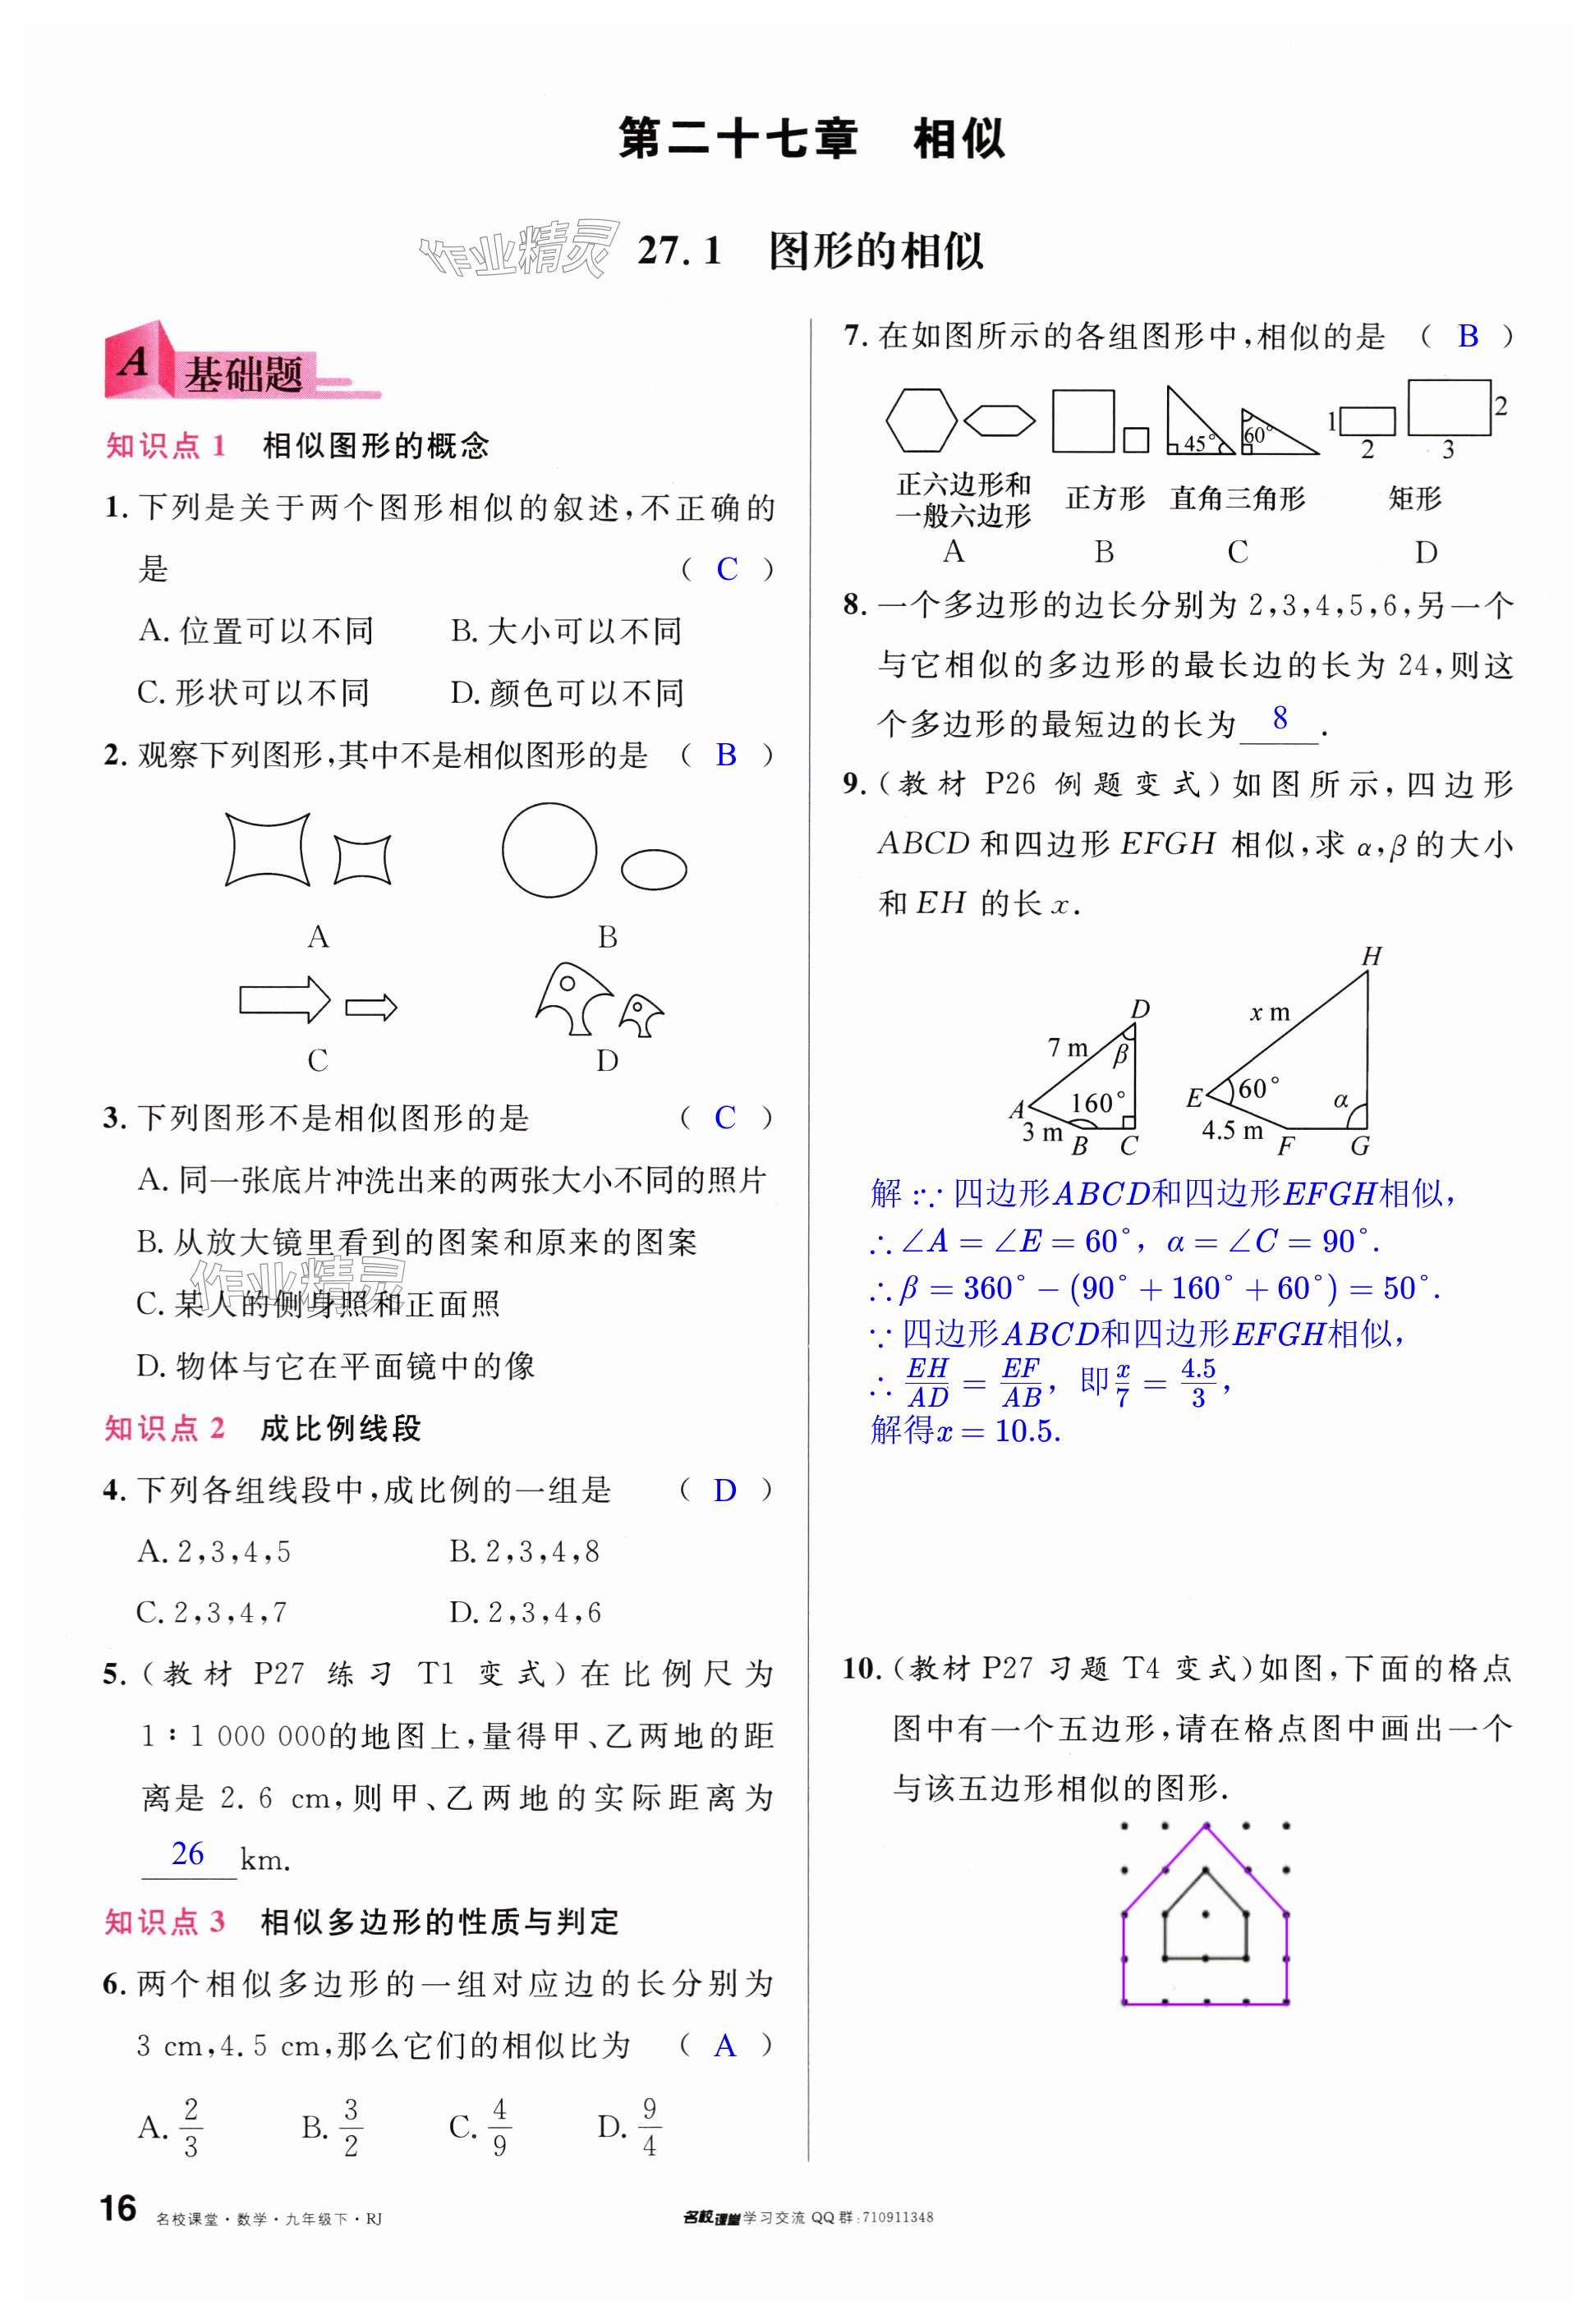 第二十七章 相似
作业精灵
27.1 图形的相似
A 基础题
知识点1 相似图形的概念
1.下列是关于两个图形相似的叙述,不正确的
是 ( C )
A.位置可以不同 B.大小可以不同
C.形状可以不同 D.颜色可以不同
2.观察下列图形,其中不是相似图形的是 ( B )
A B
C D
3.下列图形不是相似图形的是 ( C )
A.同一张底片冲洗出来的两张大小不同的照片
B.从放大镜里看到的图案和原来的图案
作业精灵
C.某人的侧身照和正面照
D.物体与它在平面镜中的像
知识点2 成比例线段
4.下列各组线段中,成比例的一组是 ( D )
A.2,3,4,5 B.2,3,4,8
C.2,3,4,7 D.2,3,4,6
5.(教材 P27 练习 T1 变式)在比例尺为
1∶1 000 000的地图上,量得甲、乙两地的距
离是 2.6 cm,则甲、乙两地的实际距离为
26 km.
知识点3 相似多边形的性质与判定
6.两个相似多边形的一组对应边的长分别为
3 cm,4.5 cm,那么它们的相似比为 ( A )
A. 2/3 B. 3/2 C. 4/9 D. 9/4
7.在如图所示的各组图形中,相似的是 ( B )
45° 60° 1 2 2 3
正六边形和
一般六边形 正方形 直角三角形 矩形
A B C D
8.一个多边形的边长分别为 2,3,4,5,6,另一个
与它相似的多边形的最长边的长为 24,则这
个多边形的最短边的长为 8 .
9.(教材 P26 例题变式)如图所示,四边形
ABCD 和四边形 EFGH 相似,求 α,β 的大小
和 EH 的长 x.
H
D x m
7 m β
A 160° E 60° α
3 m B C 4.5 m F G
解:∵四边形ABCD和四边形EFGH相似,
∴∠A=∠E=60°,α=∠C=90°.
∴β=360°−(90°+160°+60°)=50°.
∵四边形ABCD和四边形EFGH相似,
∴ EH/AD = EF/AB, 即 x/7 = 4.5/3,
解得x=10.5.
10.(教材 P27 习题 T4 变式)如图,下面的格点
图中有一个五边形,请在格点图中画出一个
与该五边形相似的图形.
16 名校课堂·数学·九年级下·RJ
名校课堂学习交流 QQ 群:710911348